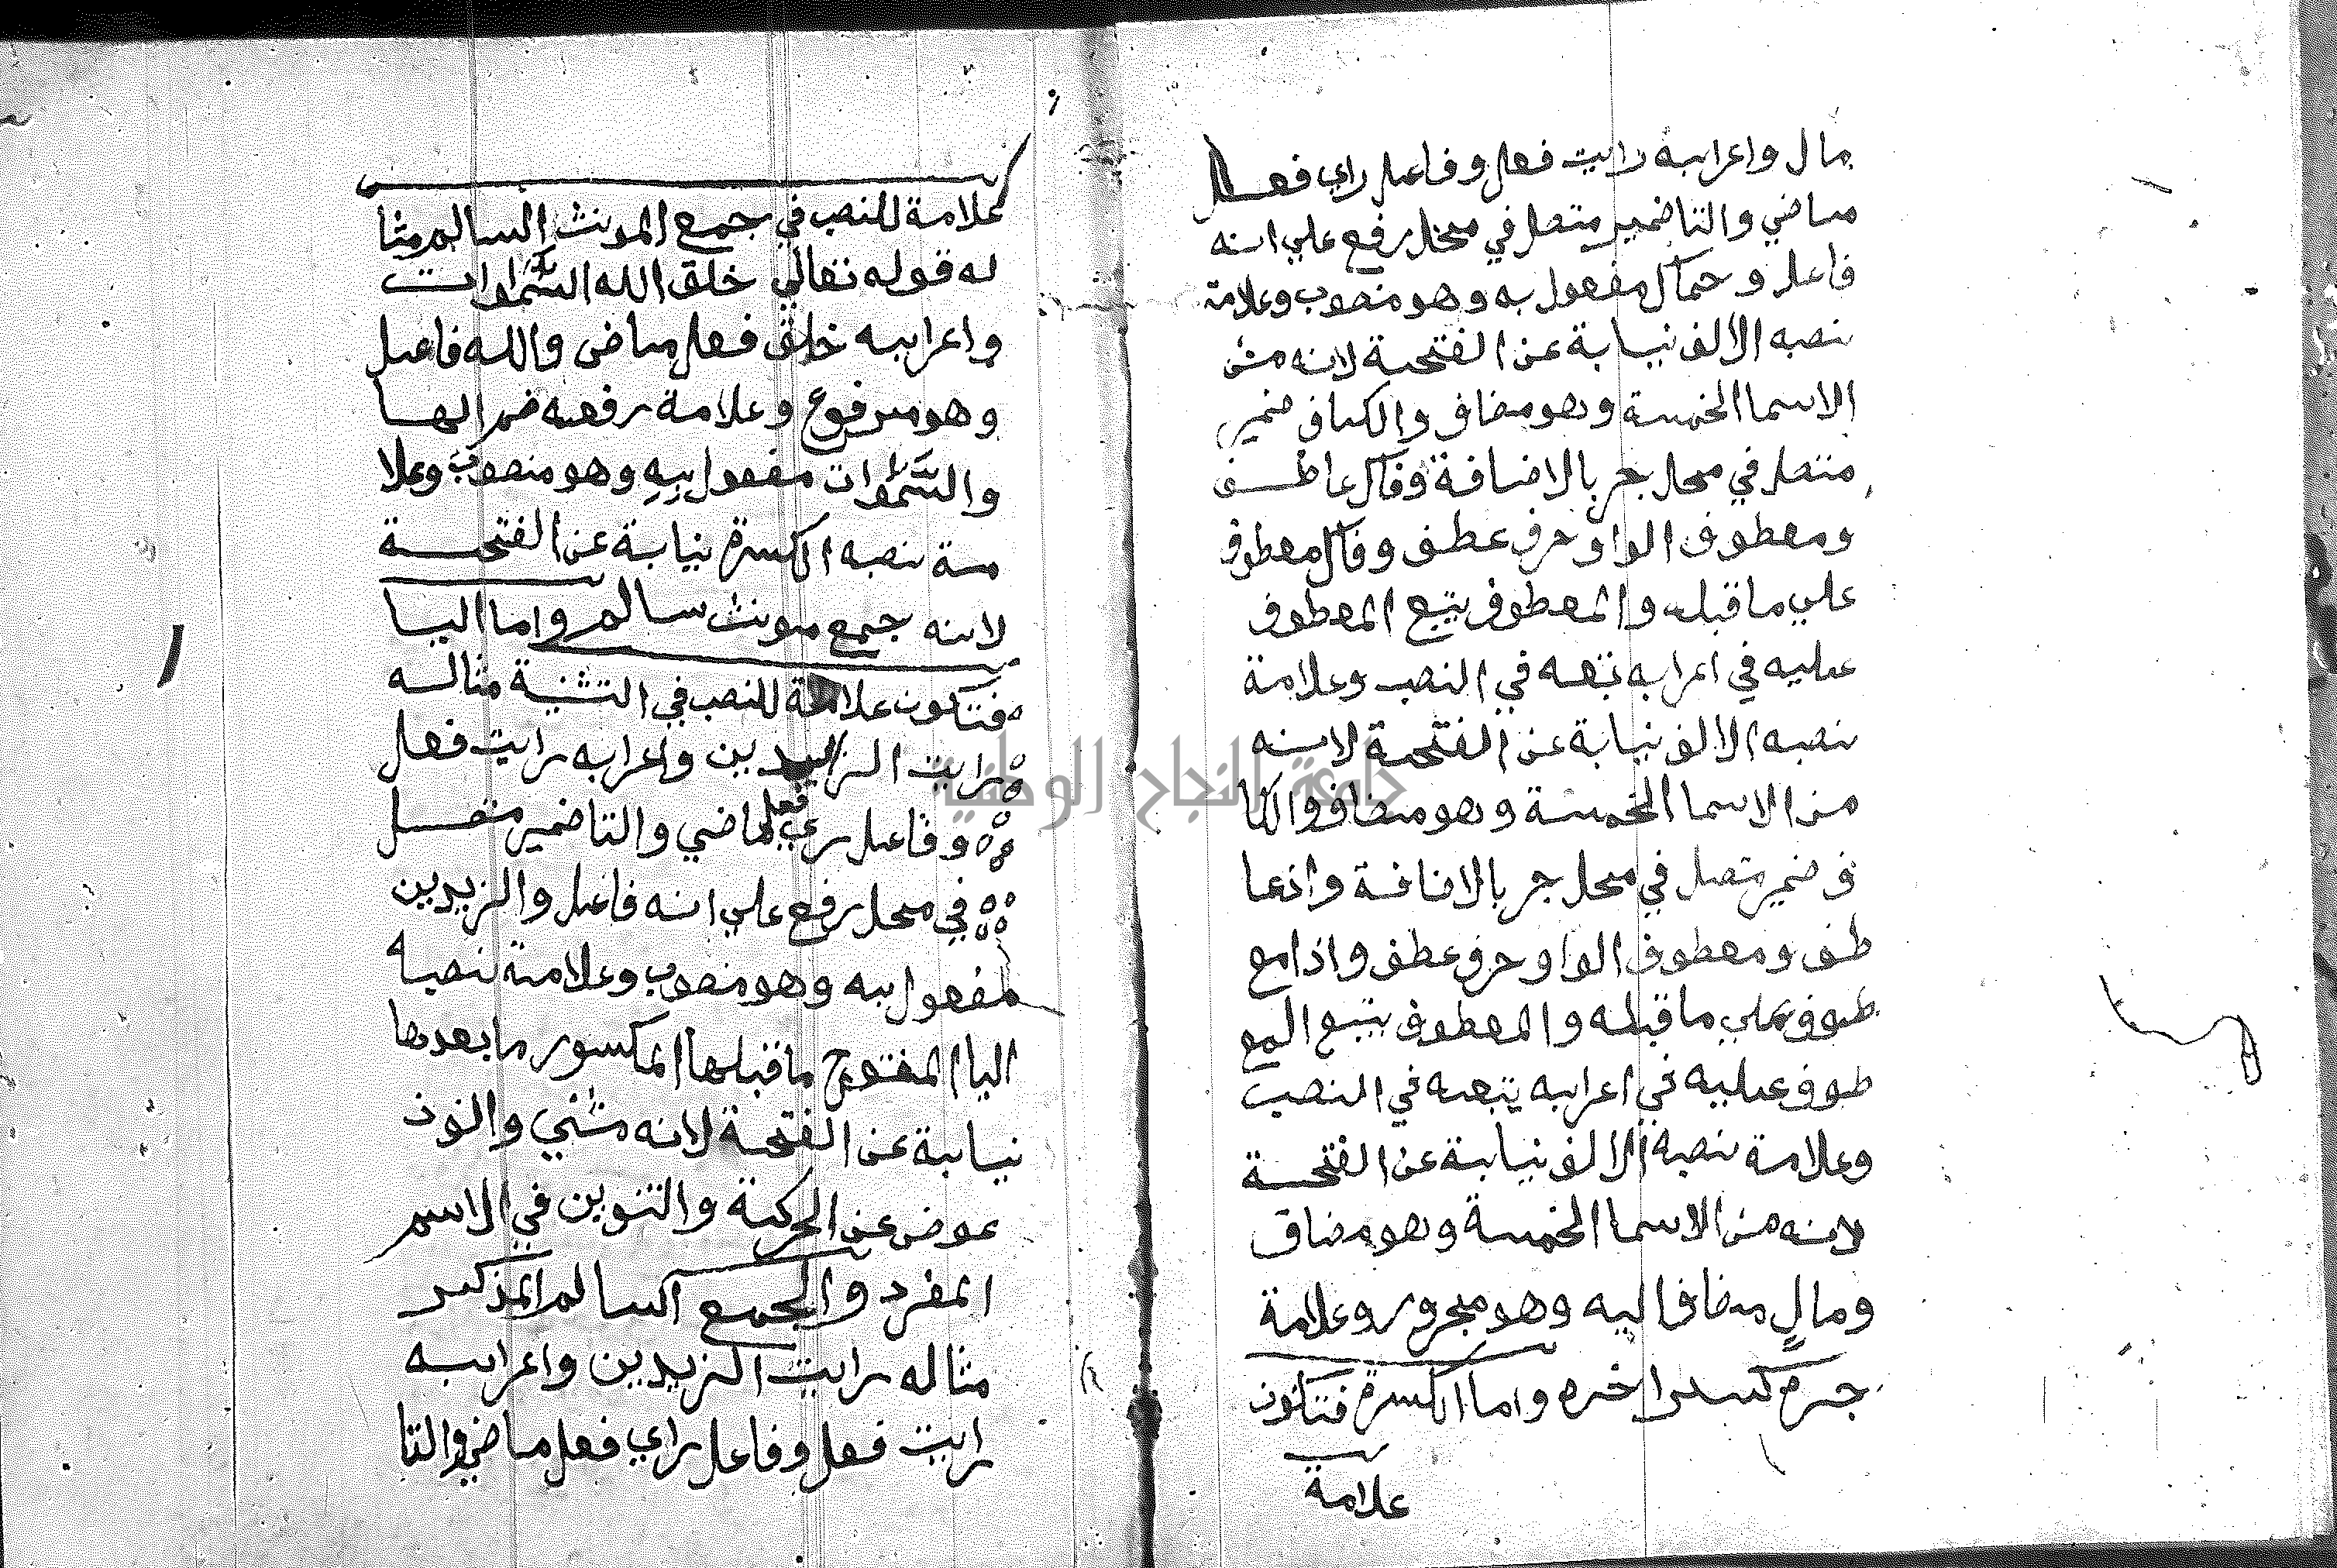 مال واعرابه رايت فعل وفاعل راي فعل
ماضي والتا ضمير متصل في محل رفع علي انه
فاعل وحماك مفعول به وهو منصوب وعلامة
نصبه الالف نيابة عن الفتحة لانه من
الاسما الخمسة وهو مضاف والكاف ضمير
متصل في محل جر بالاضافة وفاك عاطف
ومعطوف الواو حرف عطف وفاك معطوف
علي ما قبله والمعطوف يتبع المعطوف
عليه في اعرابه تبعه في النصب وعلامة
نصبه الالف نيابة عن الفتحة لانه
من الاسما الخمسة وهو مضاف والكا
ف ضمير متصل في محل جر بالاضافة وذا عا
طف ومعطوف الواو حرف عطف وذا مع
طوف علي ما قبله والمعطوف يتبع المع
طوف عليه في اعرابه يتبعه في النصب
وعلامة نصبه الالف نيابة عن الفتحة
لانه من الاسما الخمسة وهو مضاف
ومالٍ مضاف اليه وهو مجرور وعلامة
جره كسر اخره واما الكسرة فتكون
علامة
علامة للنصب في جمع المونث السالم مثا
له قوله تعالي خلق الله السموات
واعرابه خلق فعل ماض والله فاعل
وهو مرفوع وعلامة رفعه ضم الها
والسموات مفعول به وهو منصوب وعلا
مة نصبه الكسرة نيابة عن الفتحة
لانه جمع مونث سالم واما اليا
فتكون علامة للنصب في التثنية مثاله
رايت الزيدين واعرابه رايت فعل
وفاعل ري فعل ماضي والتا ضمير متصل
في محل رفع علي انه فاعل والزيدين
مفعول به وهو منصوب وعلامة نصبه
اليا المفتوح ما قبلها المكسور ما بعدها
نيابة عن الفتحة لانه مثني والنون
عوض عن الحركة والتنوين في الاسم
المفرد والجمع السالم المذكر
مثاله رايت الزيدين واعرابه
رايت فعل وفاعل راي فعل ماضي والتا
جامعة النجاح الوطنية